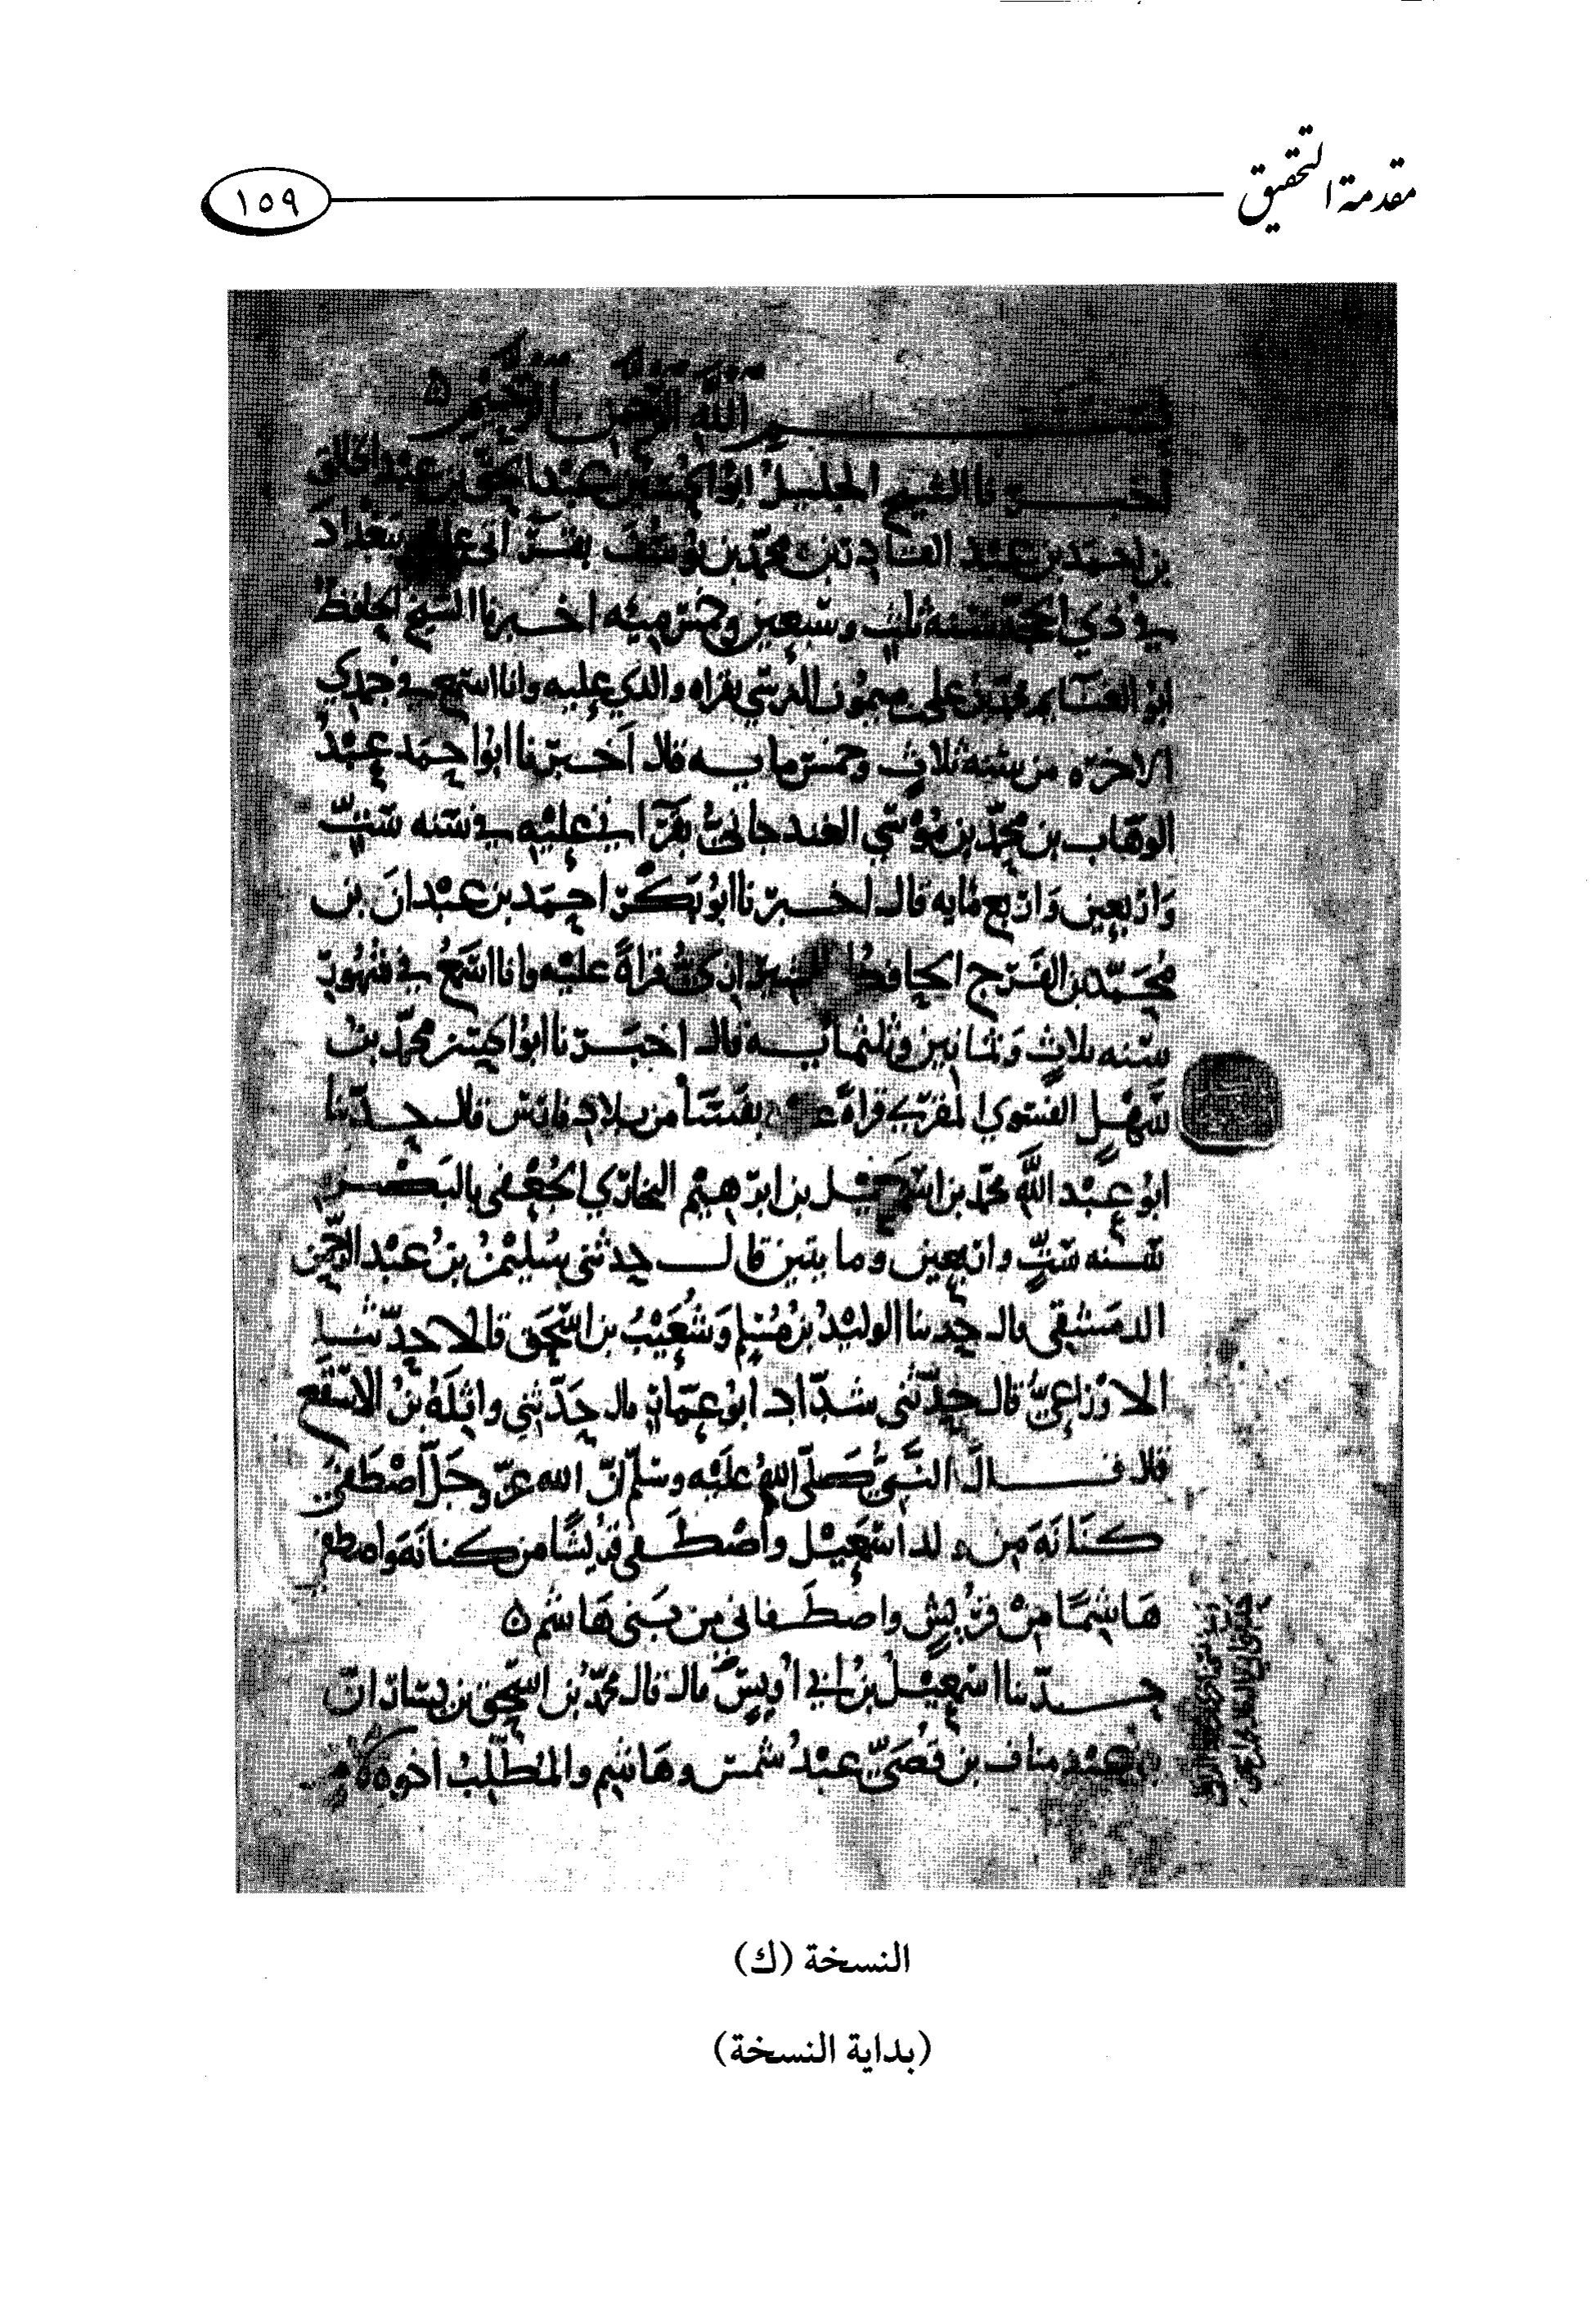 مقدمة التحقيق
١٥٩
بسم الله الرحمن الرحيم
اخبرنا الشيخ الجليل ابو الحسين عبد الحق بن عبد الخالق
بن احمد بن عبد القادر بن محمد بن يوسف بقراتي عليه ببغداد
في ذي الحجة سنه ثلث وسبعين وخمس ميه اخبرنا الشيخ الحافظ
ابو الغنايم محمد بن علي بن ميمون النرسي بقراه والدي عليه وانا اسمع في جمدي
الاخره من سنه ثلاث وخمس مايه قال اخبرنا ابو احمد عبد
الوهاب بن محمد بن موسي الغندجاني بقراتي عليه في سنه ستٍّ
واربعين واربع مايه قال اخبرنا ابو بكر احمد بن عبدان بن
محمد بن الفرج الحافظ قراةً عليه وانا اسمع في شهور
سنه ثلاث وثمانين وثلثمايه قال اخبرنا ابو الحسن محمد بن
سهل الفسوي المقري قراةً عليه بفسا من بلاد فارس قال حدثنا
ابو عبد الله محمد بن اسمعيل بن ابرهيم البخاري الجعفي بالبصره
سنه ستٍّ واربعين ومايتين قال حدثني سليمن بن عبد الرحمن
الدمشقي قال حدثنا الوليد بن مسلم وشعيب بن اسحق قالا حدثنا
الاوزاعيُّ قال حدّثني شدّاد ابو عمّار قال حدّثني واثلةُ بنُ الاسقع
قال قال النبيُّ صلّى الله عليه وسلم انّ الله عزّ وجلّ اصطفى
كنانةَ من ولد اسمعيل واصطفى قريشًا من كنانةَ واصطفى
هاشمًا من قريشٍ واصطفاني من بني هاشم ه
حدّثنا اسمعيل بن ابي اويس قال قال محمّد بن اسحق بن يسار انّ
بن عبد مناف بن قصيّ عبدُ شمس وهاشم والمطّلبُ اخوه
النسخة (ك)
(بداية النسخة)